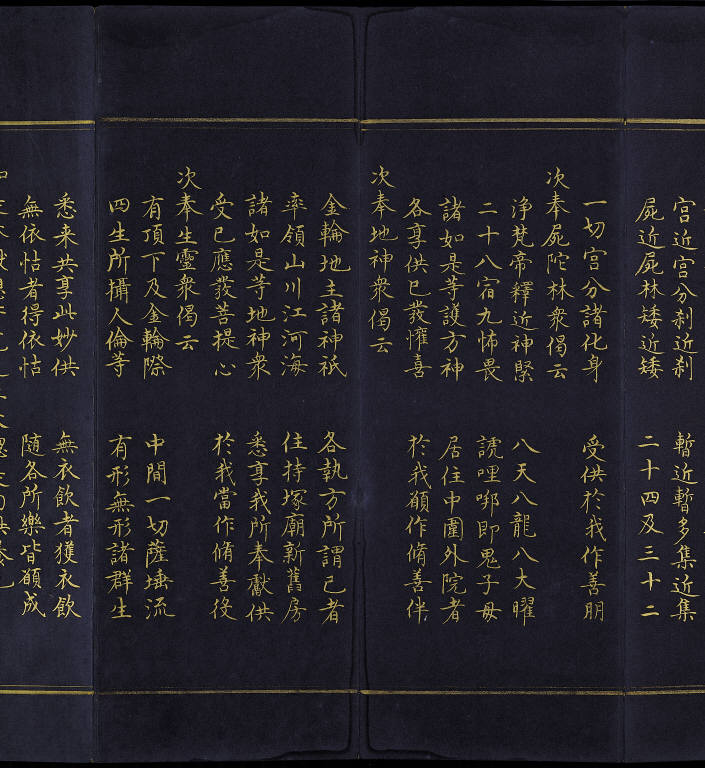 宫近宫分刹近刹　暫近暫多集近集
屍近屍林矮近矮　二十四及三十二
一切宫分諸化身　受供於我作善朋
次奉屍陀林衆偈云
淨梵帝釋近神緊　八天八龍八大曜
二十八宿九怖畏　謕哩𠷈即鬼子母
諸如是等護方神　居住中圍外院者
各享供已發懽喜　於我願作脩善伴
次奉地神衆偈云
金輪地主諸神祇　各執方所謂已者
率領山川江河海　住持塚廟新舊房
諸如是等地神衆　悉享我所奉獻供
受已應發菩提心　於我當作脩善後
次奉生靈衆偈云
有頂下及金輪際　中間一切薩埵流
四生所攝人倫等　有形無形諸群生
悉来共享此妙供　無衣飲者獲衣飲
無依怙者得依怙　随各所樂皆願成